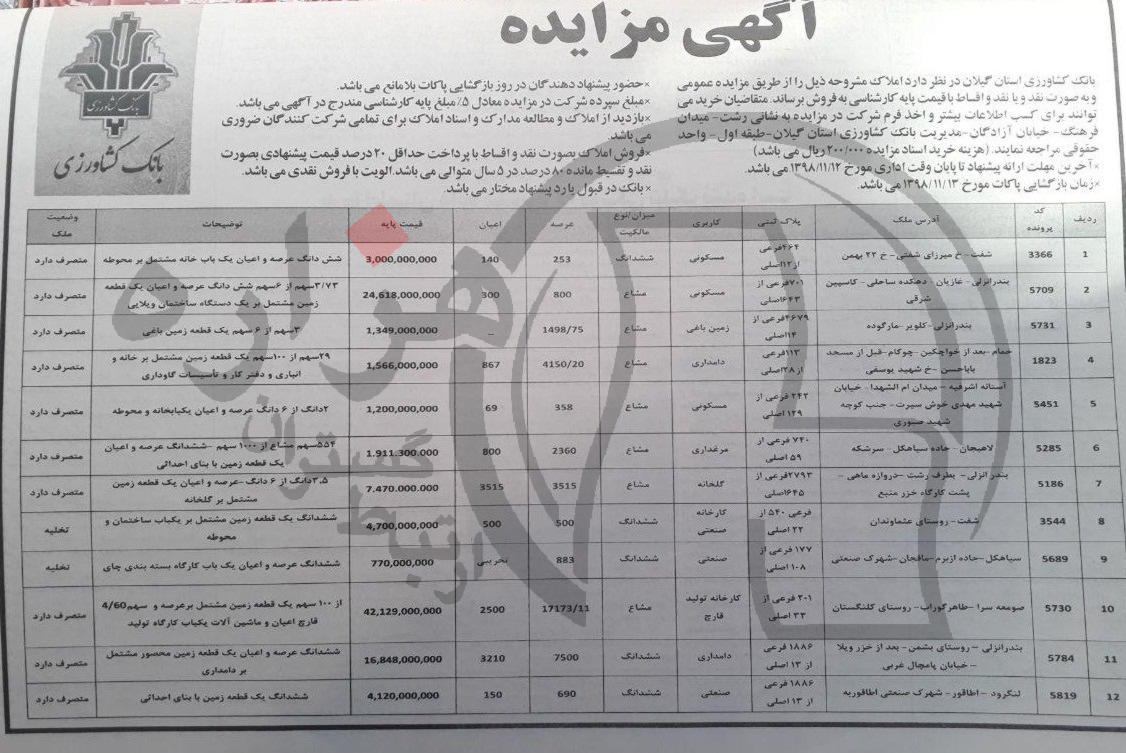 آگهی مزایده
بانک کشاورزی
بانک کشاورزی
بانک کشاورزی استان گیلان در نظر دارد املاک مشروحه ذیل را از طریق مزایده عمومی
و به صورت نقد و یا نقد و اقساط با قیمت پایه کارشناسی به فروش برساند. متقاضیان خرید می
توانند برای کسب اطلاعات بیشتر و اخذ فرم شرکت در مزایده به نشانی رشت- میدان
فرهنگ- خیابان آزادگان-مدیریت بانک کشاورزی استان گیلان-طبقه اول- واحد
حقوقی مراجعه نمایند. (هزینه خرید اسناد مزایده ۲۰۰/۰۰۰ ریال می باشد)
×آخرین مهلت ارائه پیشنهاد تا پایان وقت اداری مورخ ۱۳۹۸/۱۱/۱۲ می باشد.
×زمان بازگشایی پاکات مورخ ۱۳۹۸/۱۱/۱۳ می باشد.
×حضور پیشنهاد دهندگان در روز بازگشایی پاکات بلامانع می باشد.
×مبلغ سپرده شرکت در مزایده معادل ۵٪ مبلغ پایه کارشناسی مندرج در آگهی می باشد.
×بازدید از املاک و مطالعه مدارک و اسناد املاک برای تمامی شرکت کنندگان ضروری
می باشد.
×فروش املاک بصورت نقد و اقساط با پرداخت حداقل ۲۰ درصد قیمت پیشنهادی بصورت
نقد و تقسیط مانده ۸۰ درصد در ۵ سال متوالی می باشد. الویت با فروش نقدی می باشد.
×بانک در قبول یا رد پیشنهاد مختار می باشد.
ردیف کد پرونده آدرس ملک پلاک ثبتی کاربری میزان/نوع مالکیت عرصه اعیان قیمت پایه توضیحات وضعیت ملک
1 3366 شفت- خ میرزای شفتی- خ ۲۲ بهمن ۴۶۴فرعی از۱۲اصلی مسکونی ششدانگ 253 140 3,000,000,000 شش دانگ عرصه و اعیان یک باب خانه مشتمل بر محوطه متصرف دارد
2 5709 بندرانزلی- غازیان- دهکده ساحلی- کاسپین شرقی ۷۰۱فرعی از ۶۴۳اصلی مسکونی مشاع 800 300 24,618,000,000 ۳/۷۳سهم از ۶سهم شش دانگ عرصه و اعیان یک قطعه زمین مشتمل بر یک دستگاه ساختمان ویلایی متصرف دارد
3 5731 بندرانزلی-کلویر-مارگوده ۴۶۷۹فرعی از ۱۴اصلی زمین باغی مشاع 1498/75 _ 1,349,000,000 ۳سهم از ۶ سهم یک قطعه زمین باغی متصرف دارد
4 1823 خمام-بعد از خواچکین-چوکام-قبل از مسجد باباحسن-خ شهید یوسفی ۱۱۳فرعی از ۲۸اصلی دامداری مشاع 4150/20 867 1,566,000,000 ۲۹سهم از ۱۰۰سهم یک قطعه زمین مشتمل بر خانه و انباری و دفتر کار و تأسیسات گاوداری متصرف دارد
5 5451 آستانه اشرفیه – میدان ام الشهدا- خیابان شهید مهدی خوش سیرت- جنب کوچه شهید صبوری ۲۴۲ فرعی از ۱۲۹ اصلی مسکونی مشاع 358 69 1,200,000,000 ۲دانگ از ۶ دانگ عرصه و اعیان یکبابخانه و محوطه متصرف دارد
6 5285 لاهیجان- جاده سیاهکل- سرشکه ۷۴۰ فرعی از ۵۹ اصلی مرغداری مشاع 2360 800 1.911.300.000 ۵۵۴سهم مشاع از ۱۰۰۰ سهم -ششدانگ عرصه و اعیان یک قطعه زمین با بنای احداثی متصرف دارد
7 5186 بندر انزلی- بطرف رشت -دروازه ماهی – پشت کارگاه خزر منبع ۲۷۹۳فرعی از ۶۴۵اصلی گلخانه مشاع 3515 3515 7.470.000.000 ۳.۵دانگ از ۶ دانگ -عرصه و اعیان یک قطعه زمین مشتمل بر گلخانه متصرف دارد
8 3544 شفت- روستای عثماوندان فرعی ۵۴۰ از ۲۲ اصلی کارخانه صنعتی ششدانگ 500 500 4,700,000,000 ششدانگ یک قطعه زمین مشتمل بر یکباب ساختمان و محوطه تخلیه
9 5689 سیاهکل-جاده ازبرم-مافجان-شهرک صنعتی ۱۷۷ فرعی از ۱۰۸ اصلی صنعتی ششدانگ 883 تخریبی 770,000,000 ششدانگ عرصه و اعیان یک باب کارگاه بسته بندی چای تخلیه
10 5730 صومعه سرا- طاهرگوراب- روستای کلنگستان ۲۰۱ فرعی از ۳۳ اصلی کارخانه تولید قارچ مشاع 17173/11 2500 42,129,000,000 از ۱۰۰ سهم یک قطعه زمین مشتمل برعرصه و سهم4/60 قارچ اعیان و ماشین آلات یکباب کارگاه تولید متصرف دارد
11 5784 بندرانزلی – روستای بشمن- بعد از خزر ویلا – خیابان پامچال غربی ۱۸۸۶ فرعی از ۱۳ اصلی دامداری ششدانگ 7500 3210 16,848,000,000 ششدانگ عرصه و اعیان یک قطعه زمین محصور مشتمل بر دامداری متصرف دارد
12 5819 لنگرود -اطاقور- شهرک صنعتی اطاقوریه ۱۸۸۶ فرعی از ۱۳ اصلی صنعتی ششدانگ 690 150 4,120,000,000 ششدانگ یک قطعه زمین با بنای احداثی متصرف دارد
هزاره
گستران
ارتباط